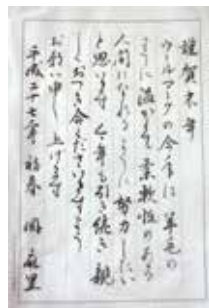 謹賀未年
ウールマークの今年は羊毛の
ように温かく柔軟性のある
人間になれるように努力したい
と思います 今年も引き続き親
しくおつき合いくださいますよう
お願い申し上げます
平成二十七年 初春